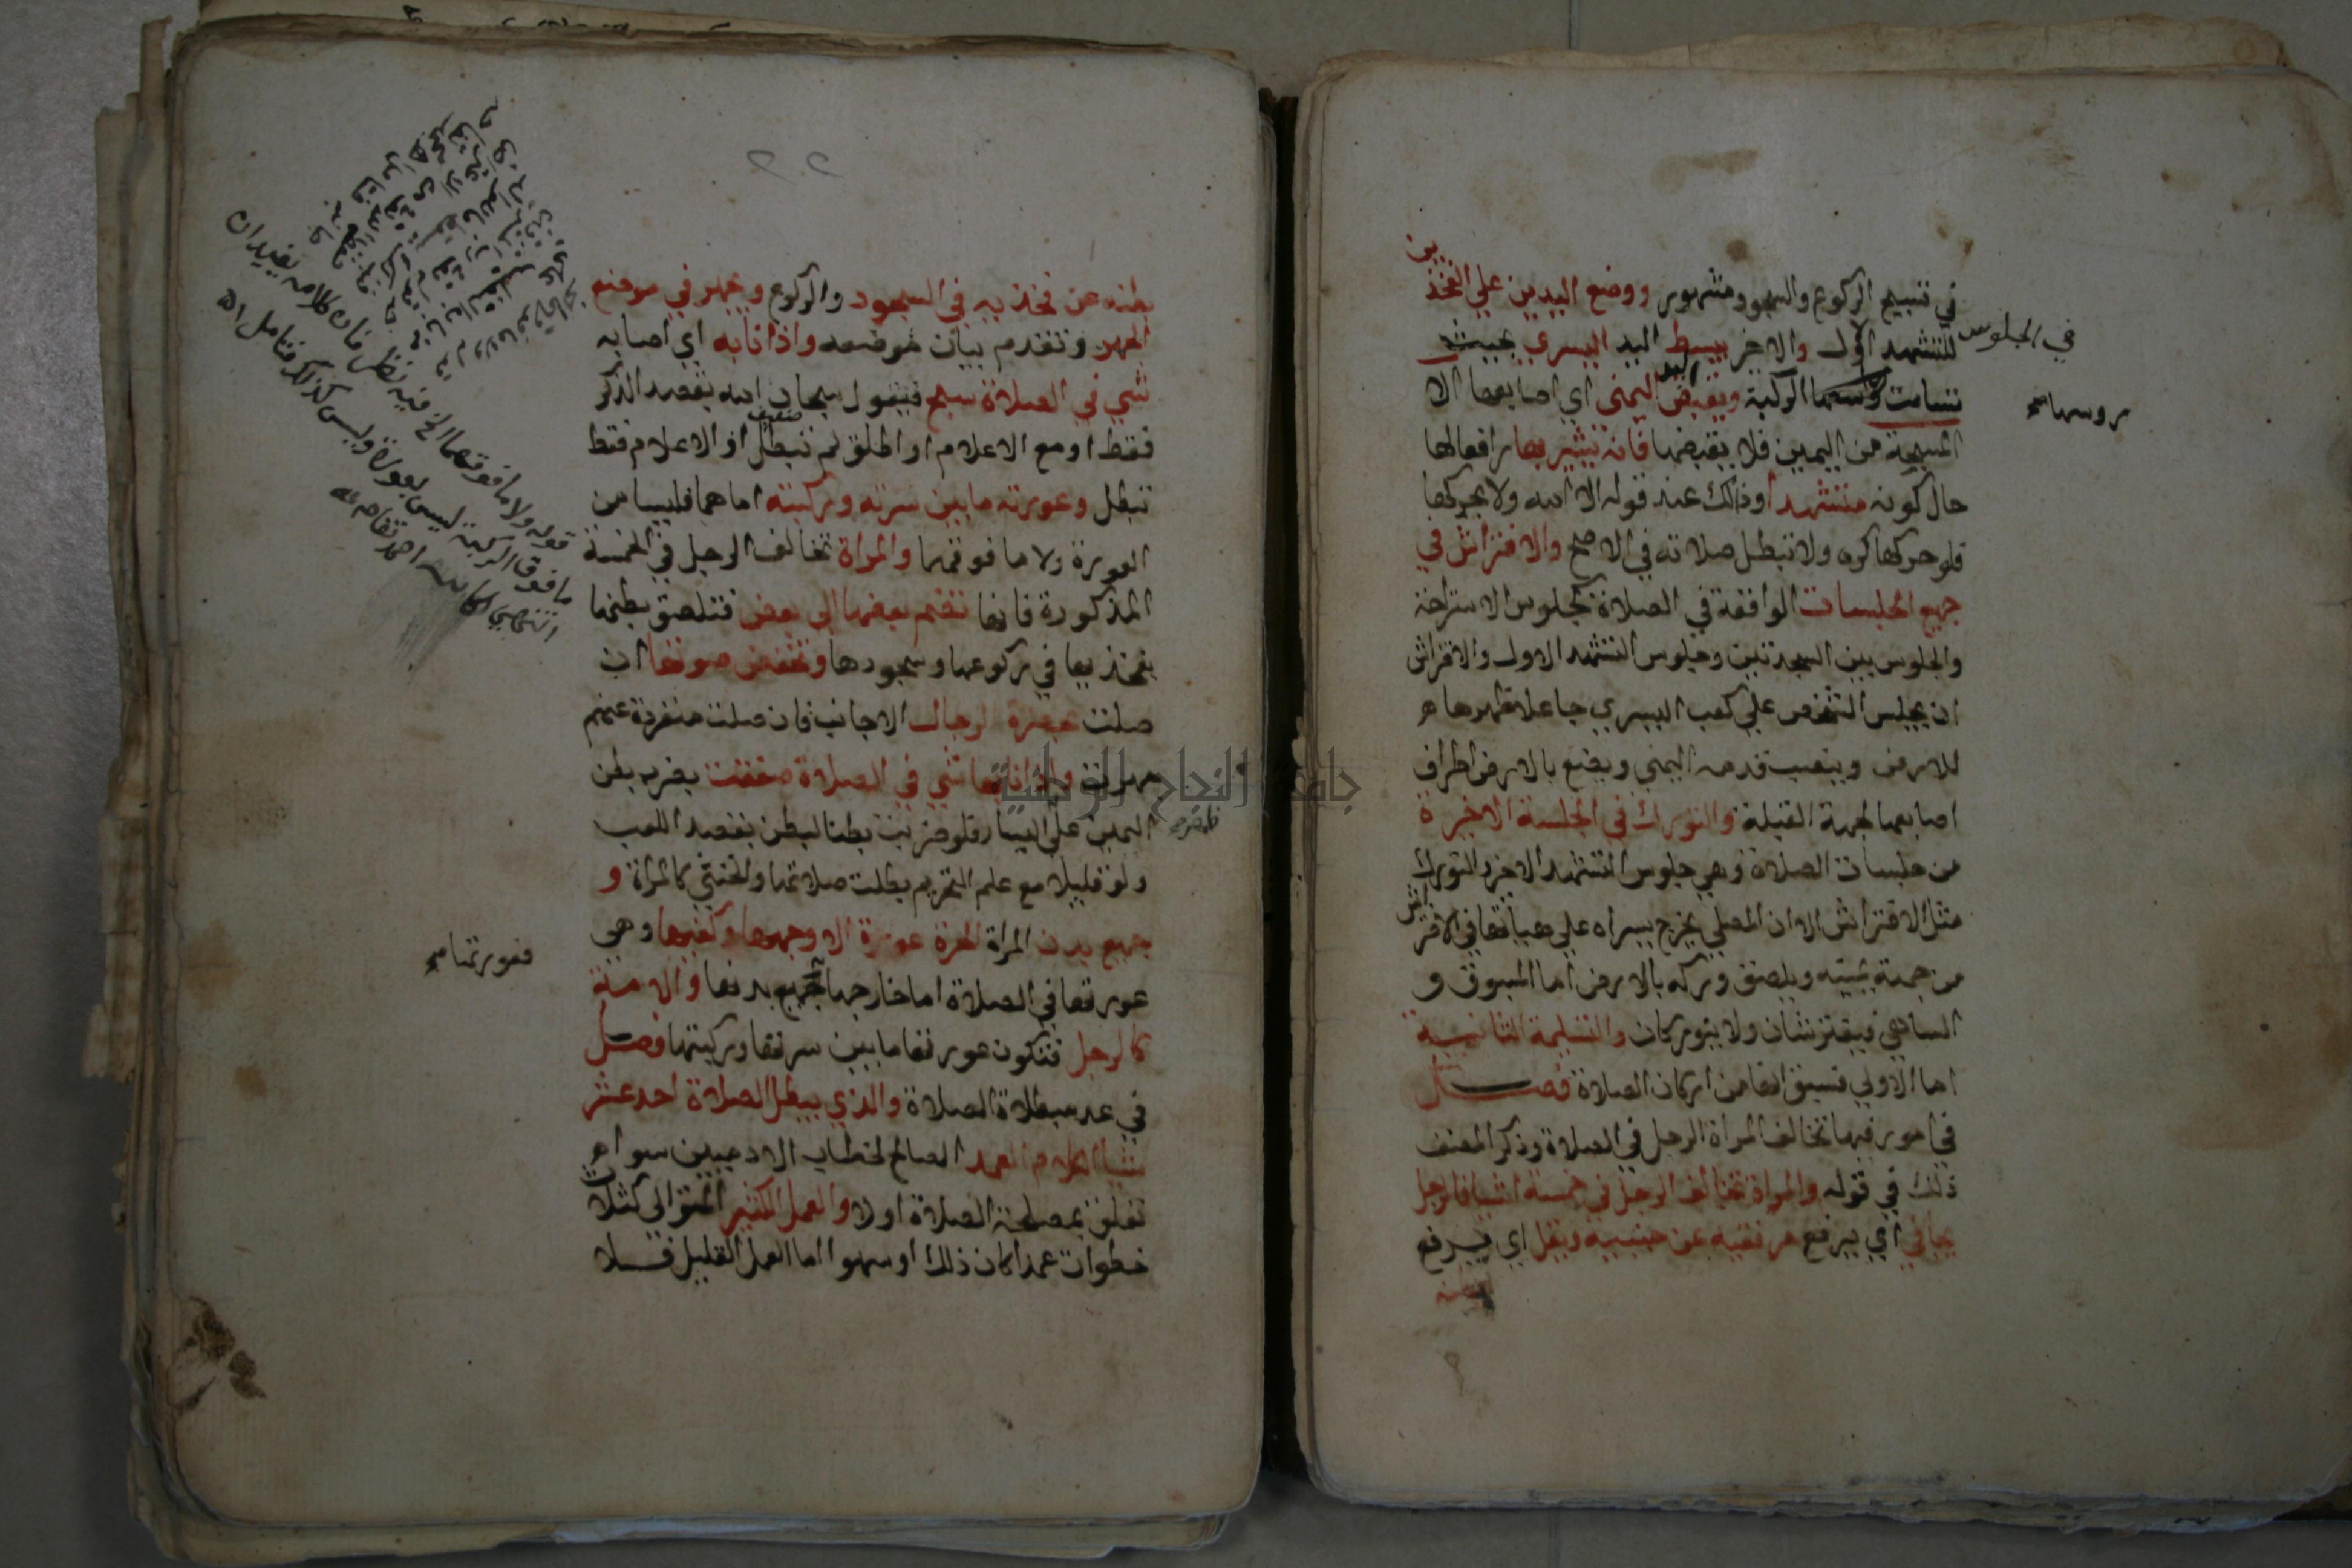 في تسبيح الركوع والسجود مشهور ووضع اليدين علي الفخذين
في الجلوس
للتشهد الاول والاخر يبسط اليد اليسري بحيث
تسامت رؤسها الركبة ويقبض اليد اليمني اي اصابعها الا
روسها صح
المسبحة من اليمين فلا يقبضها فانه يشير بها رافعا لها
حال كونه متشهدا وذلك عند قوله الا الله ولا يحركها
فلو حركها كره ولا تبطل صلاته في الاصح والافتراش في
جميع الجلسات الواقعة في الصلاة كجلوس الاستراحة
والجلوس بين السجدتين وجلوس التشهد الاول والافتراش
ان يجلس الشخص علي كعب اليسري جاعلا ظهرها
للارض وينصب قدمه اليمني ويضع بالارض اطراف
اصابعها لجهة القبلة والتورك في الجلسة الاخيرة
من جلسات الصلاة وهي جلوس التشهد الاخر والتورك
مثل الافتراش الا ان المصلي يخرج يسراه علي هياتها في الافتراش
من جهة يمينه ويلصق وركه بالارض اما المسبوق و
الساهي فيفترشان ولا يتوركان والتسليمة الثانية
اما الاولي فسبق انها من اركان الصلاة فصل
في امور فيها تخالف المراة الرجل في الصلاة وذكر المصنف
ذلك في قوله والمراة تخالف الرجل في خمسة اشيا فالرجل
يجافي اي يرفع مرفقيه عن جنبيه ويقل اي يرفع
بطنه
بطنه عن فخذيه في السجود والركوع ويجهر في موضع
الجهر وتقدم بيان موضعه واذا نابه اي اصابه
شي في الصلاة سبح فيقول سبحان الله بقصد الذكر
فقط او مع الاعلام او اطلق لم تبطل او الاعلام فقط
ضعيف
تبطل وعورته ما بين سرته وركبته اما هما فليسا من
العورة ولا ما فوقهما والمراة تخالف الرجل في الخمسة
المذكورة فانها تضم بعضها الي بعض فتلصق بطنها
بفخذيها في ركوعها وسجودها وتخفض صوتها ان
صلت بحضرة الرجال الاجانب فان صلت منفردة عنهم
جهرت واذا نابها شي في الصلاة صفقت بضرب بطن
اليمين علي اليسار فلو ضربت بطنا لبطن بقصد اللعب
ولو قليلا مع علم التحريم بطلت صلاتها والخنثي كالمراة و
جميع بدن المراة الحرة عورة الا وجهها وكفيها وهي
عورتها في الصلاة اما خارجها فجميع بدنها والامة
فعورتها صح
كالرجل فتكون عورتها ما بين سرتها وركبتها فصل
في عدد مبطلات الصلاة والذي يبطل الصلاة احد عشر
شيا الكلام العمد الصالح لخطاب الادميين سواء
تعلق بمصلحة الصلاة اولا والعمل الكثير المتوالي كثلاث
خطوات عمدا كان ذلك او سهوا اما العمل القليل فلا
قوله ولا ما فوقهما الخ فيه نظر فان كلامه يفيد ان
ما فوق الركبة ليس بعورة وليس كذلك فتامل اه
جامعة النجاح الوطنية